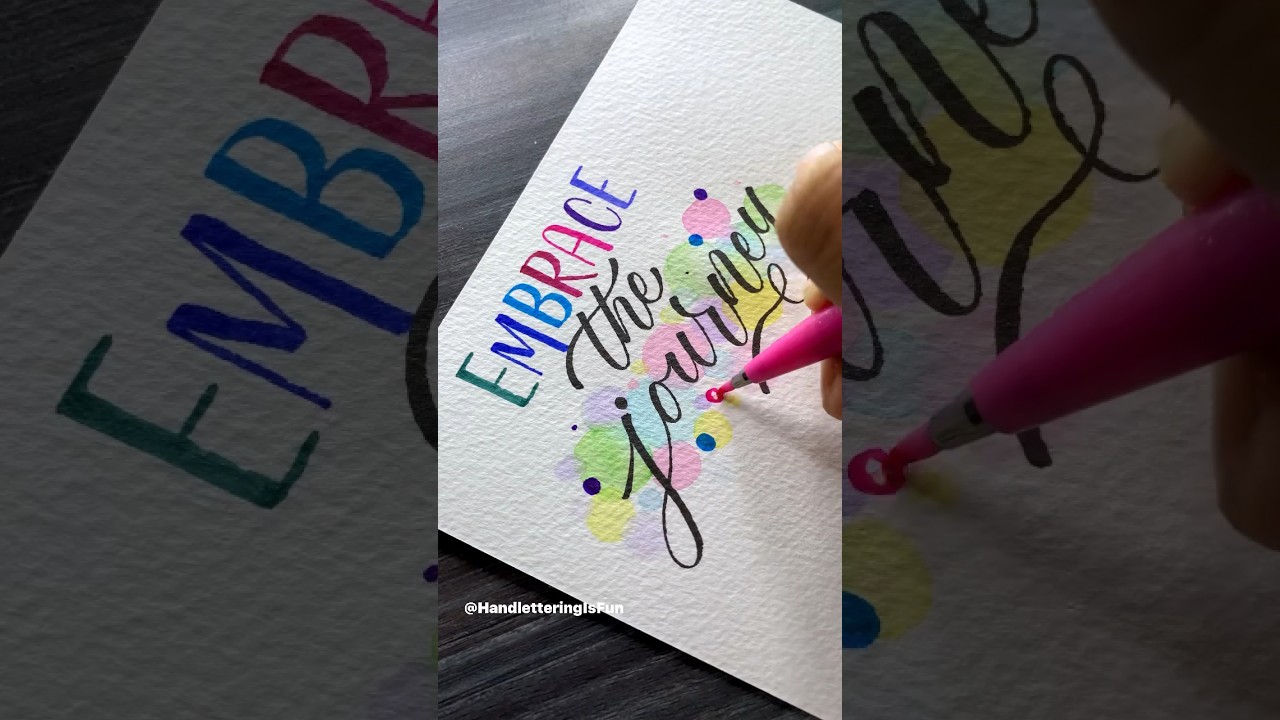 EMBRACE
the
journey
@HandletteringIsFun